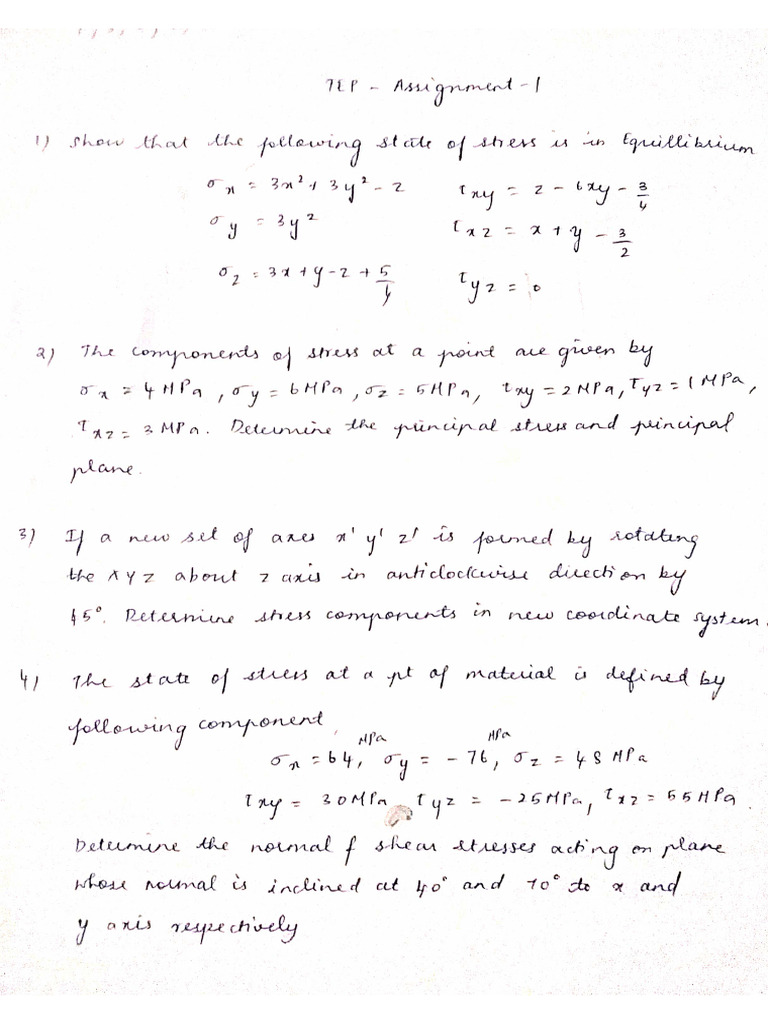 TEP - Assignment - 1
1) Show that the following state of stress is in Equillibrium
σx = 3x² + 3y² - z τxy = z - 6xy - 3/4
σy = 3y² τxz = x + y - 3/2
σz = 3x + y - z + 5/4 τyz = 0
2) The components of stress at a point are given by
σx = 4 MPa, σy = 6 MPa, σz = 5 MPa, τxy = 2 MPa, τyz = 1 MPa,
τxz = 3 MPa. Determine the principal stress and principal
plane.
3) If a new set of axes x' y' z' is formed by rotating
the XYZ about z axis in anticlockwise direction by
45°. Determine stress components in new coordinate system.
4) The state of stress at a pt of material is defined by
following component
σx = 64 MPa, σy = - 76 MPa, σz = 48 MPa
τxy = 30 MPa τyz = - 25 MPa, τxz = 55 MPa.
Determine the normal & shear stresses acting on plane
whose normal is inclined at 40° and 70° to x and
y axis respectively